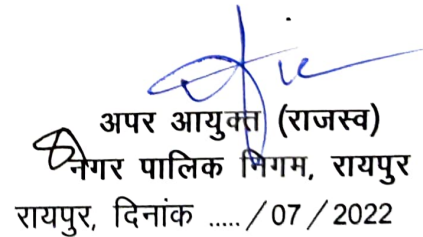 अपर आयुक्त (राजस्व)
नगर पालिक निगम, रायपुर
रायपुर, दिनांक ..... / 07 / 2022